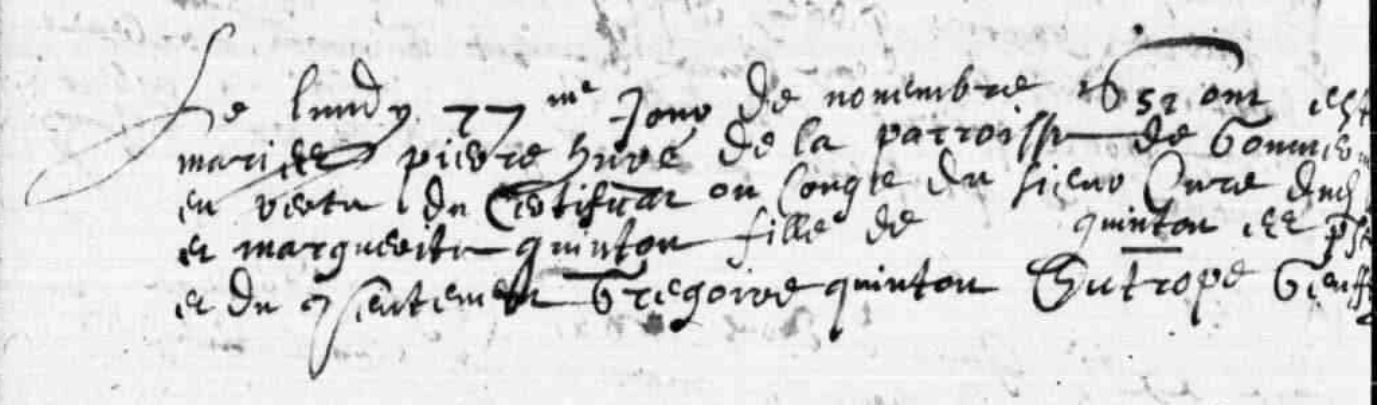 Le lundy me Jour de nouembre ont est
mariez pierre huré de la parroisse de Gommer
en vertu du Certificat ou Congé du sieur Curé dud
et marguerite quinton fille de quinton et
et du consentement Gregoire quinton Eutrope Geuff